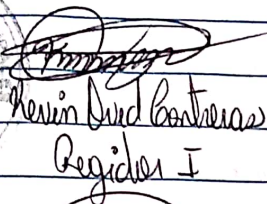 Kevin Ovid Contreras
Regidor I